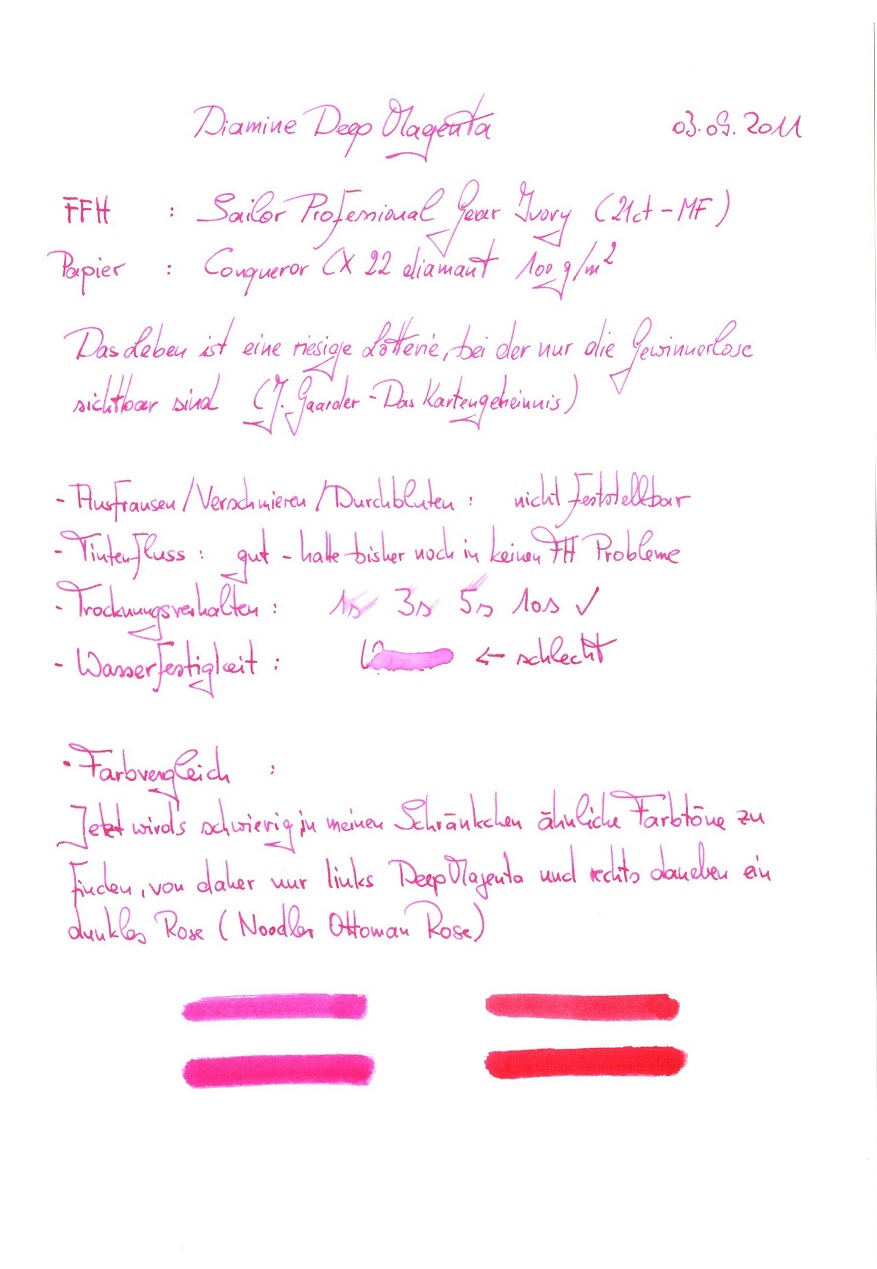 Diamine Deep Magenta 03.09.2011
FFH : Sailor Professional Gear Ivory (21ct - MF)
Papier : Conqueror CX 22 diamant 100 g/m²
Das Leben ist eine riesige Lotterie, bei der nur die Gewinnerlose
sichtbar sind (J. Gaarder - Das Kartengeheimnis)
- Ausfransen / Verschmieren / Durchbluten : nicht feststellbar
- Tintenfluss : gut - hatte bisher noch in keinen FH Probleme
- Trocknungsverhalten : 1s 3s 5s 10s ✓
- Wasserfestigkeit : ← schlecht
- Farbvergleich :
Jetzt wird's schwierig in meinen Schränkchen ähnliche Farbtöne zu
finden, von daher nur links Deep Magenta und rechts daneben ein
dunkles Rose (Noodler Ottoman Rose)